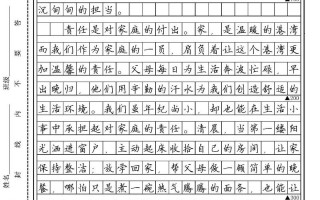 沉甸甸的担当。
责任是对家庭的付出。家，是温暖的港湾
而我们作为家庭的一员，肩负着让这个港湾更
加温馨的责任。父母每日为生活奔波忙碌，早
出晚归，他们用辛勤的汗水为我们创造舒适的
▲200
生活环境。我们虽年纪尚小，却也能在生活小
事中承担起对家庭的责任。清晨，当第一缕阳
光洒进窗户，主动起床收拾自己的房间，让家
保持整洁；放学回家，帮父母做一顿简单的晚
餐，哪怕只是煮一碗热气腾腾的面条，也能让
▲300
答
要
不
内
线
封
班级
姓名